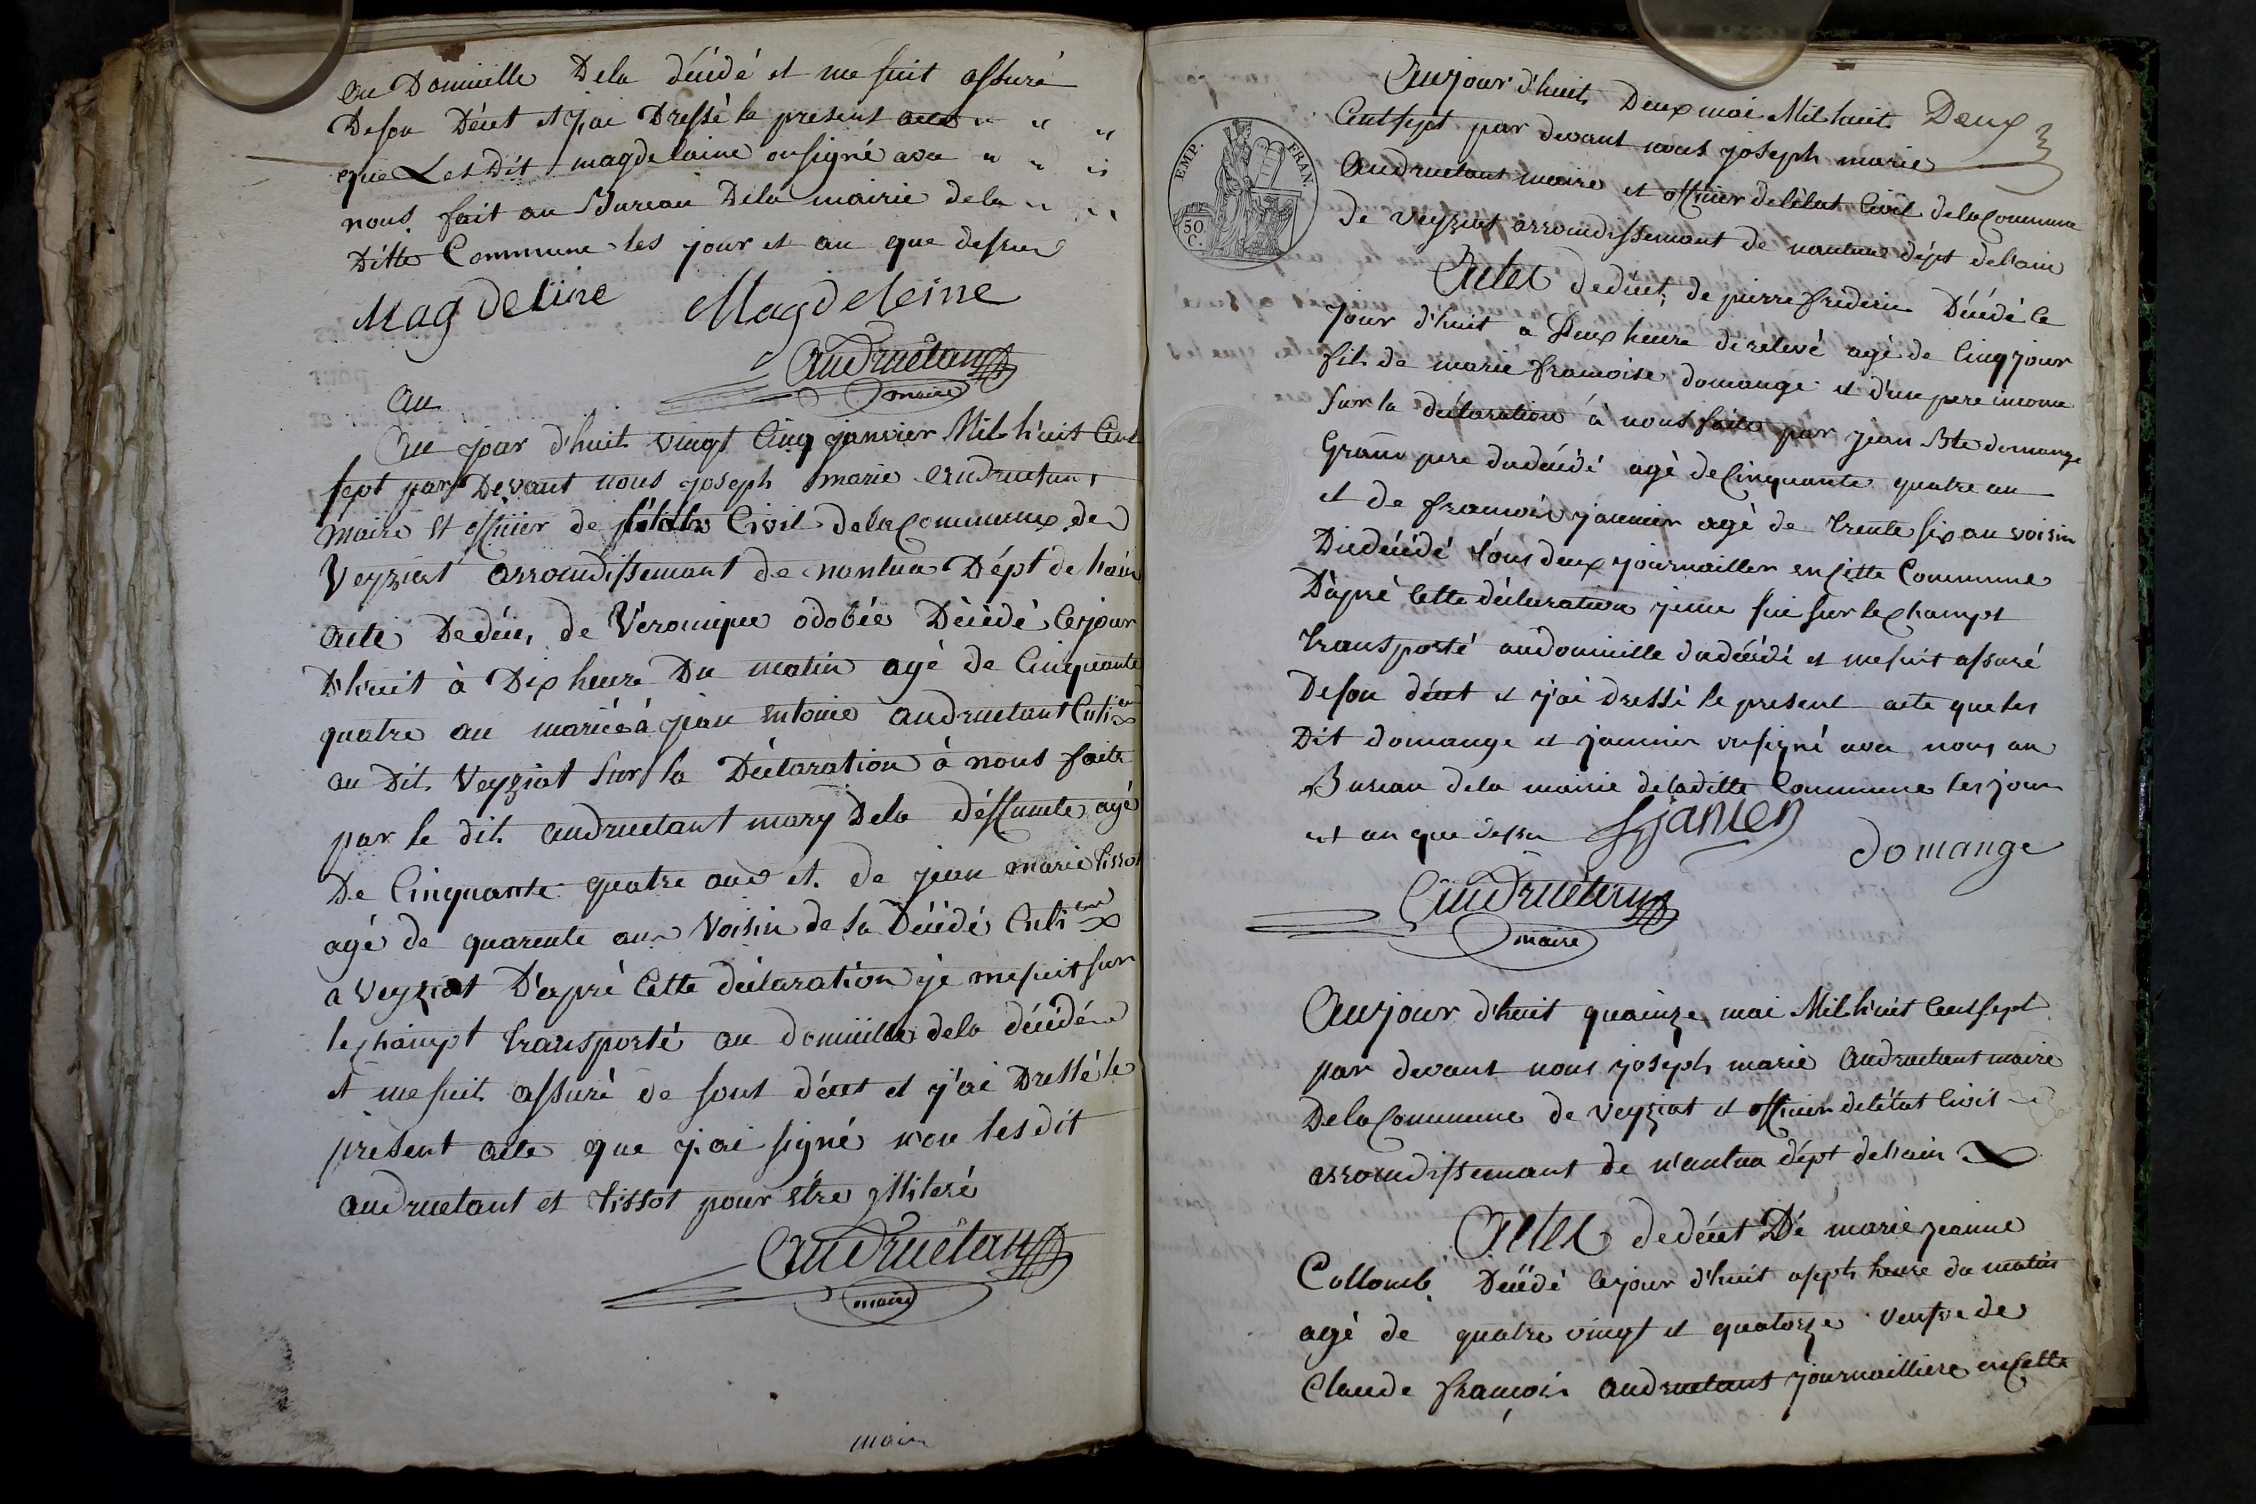 au Domicille Dela décédé et me suit assuré
De son Décet et j'ai Dressé le present acte " " "
que Les Dit magdelaine on signé avec " " "
nous fait au Bureau Dela mairie dela " "
Ditte Commune les jour et an que dessus
Mag deline Magdeleine
Andruétan
maire
Au
Au jour d'huit vingt Cinq janvier Mil huit Cent
sept par Devant nous joseph marie Andruetan,
maire et officier de l'état Civil dela Commune de
Veyziat arrondissement de nantua Dépt de l'ain
acte De déce, de Véronique odobée Décédé ce jour
D'huit à Dix heure Du matin agé de Cinquante
quatre an mariéé à jean antoine andruetant Culti eur
au Dit Veyziat Sur la Déclaration à nous faite
par le dit andruetant mary Dela déffunte agé
De Cinquante quatre ans et de jean marie tissot
agé de quarente ans Voisin de la Décédé Culti eur
a Veyziat D'apré Cette déclaration je me suit sur
le champt transporté au domicille dela décédé
et me suit assuré de sont décet et j'ai Dressé le
présent acte que j'ai signé non les dit
andruetant et tissot pour etre illiteré
Andruétan
maire
mair
Deux
EMP. FRAN.
50
C.
Aujour d'huit Deux mai Mil huit
Cent sept par devant nous joseph marie
Andruetant maire et officier de l'état Civil dela Commune
de Veyziat arrondissement de nantua dépt de l'ain
Actes de décet, de pierre frederic Décédé le
jour d'huit a Deux heure de relevé agé de Cinq jour
fils de marie francoise domange et d'un pere inconu
Sur la déclaration à nous faite par jean Bte domange
Grand pere du décédé agé de Cinquante quatre an
et de francois jannier agé de trente six an voisin
Du décédé tous deux journailler en cette Commune
D'apré Cette déclaration je me sui sur le champt
transporté au domicille du décédé et me suit assuré
De son décet et j'ai dressé le present acte que les
Dit domange et jannier on signé avec nous au
Bureau dela mairie de la ditte Commune les jour
et an que dessu fjanien
domange
Andruétan
maire
Aujour d'huit quainze mai Mil huit Cent sept
par devant nous joseph marie andruetant maire
De la Commune de veyziat et officier de l'état Civil
arrondissement de nantua dépt de l'ain
Actes de décet Dé marie jeanne
Collomb Décédé ce jour d'huit a sept heure du matin
agé de quatre vingt et quatorze veufve de
Claude francois andruetant journailliere en cette